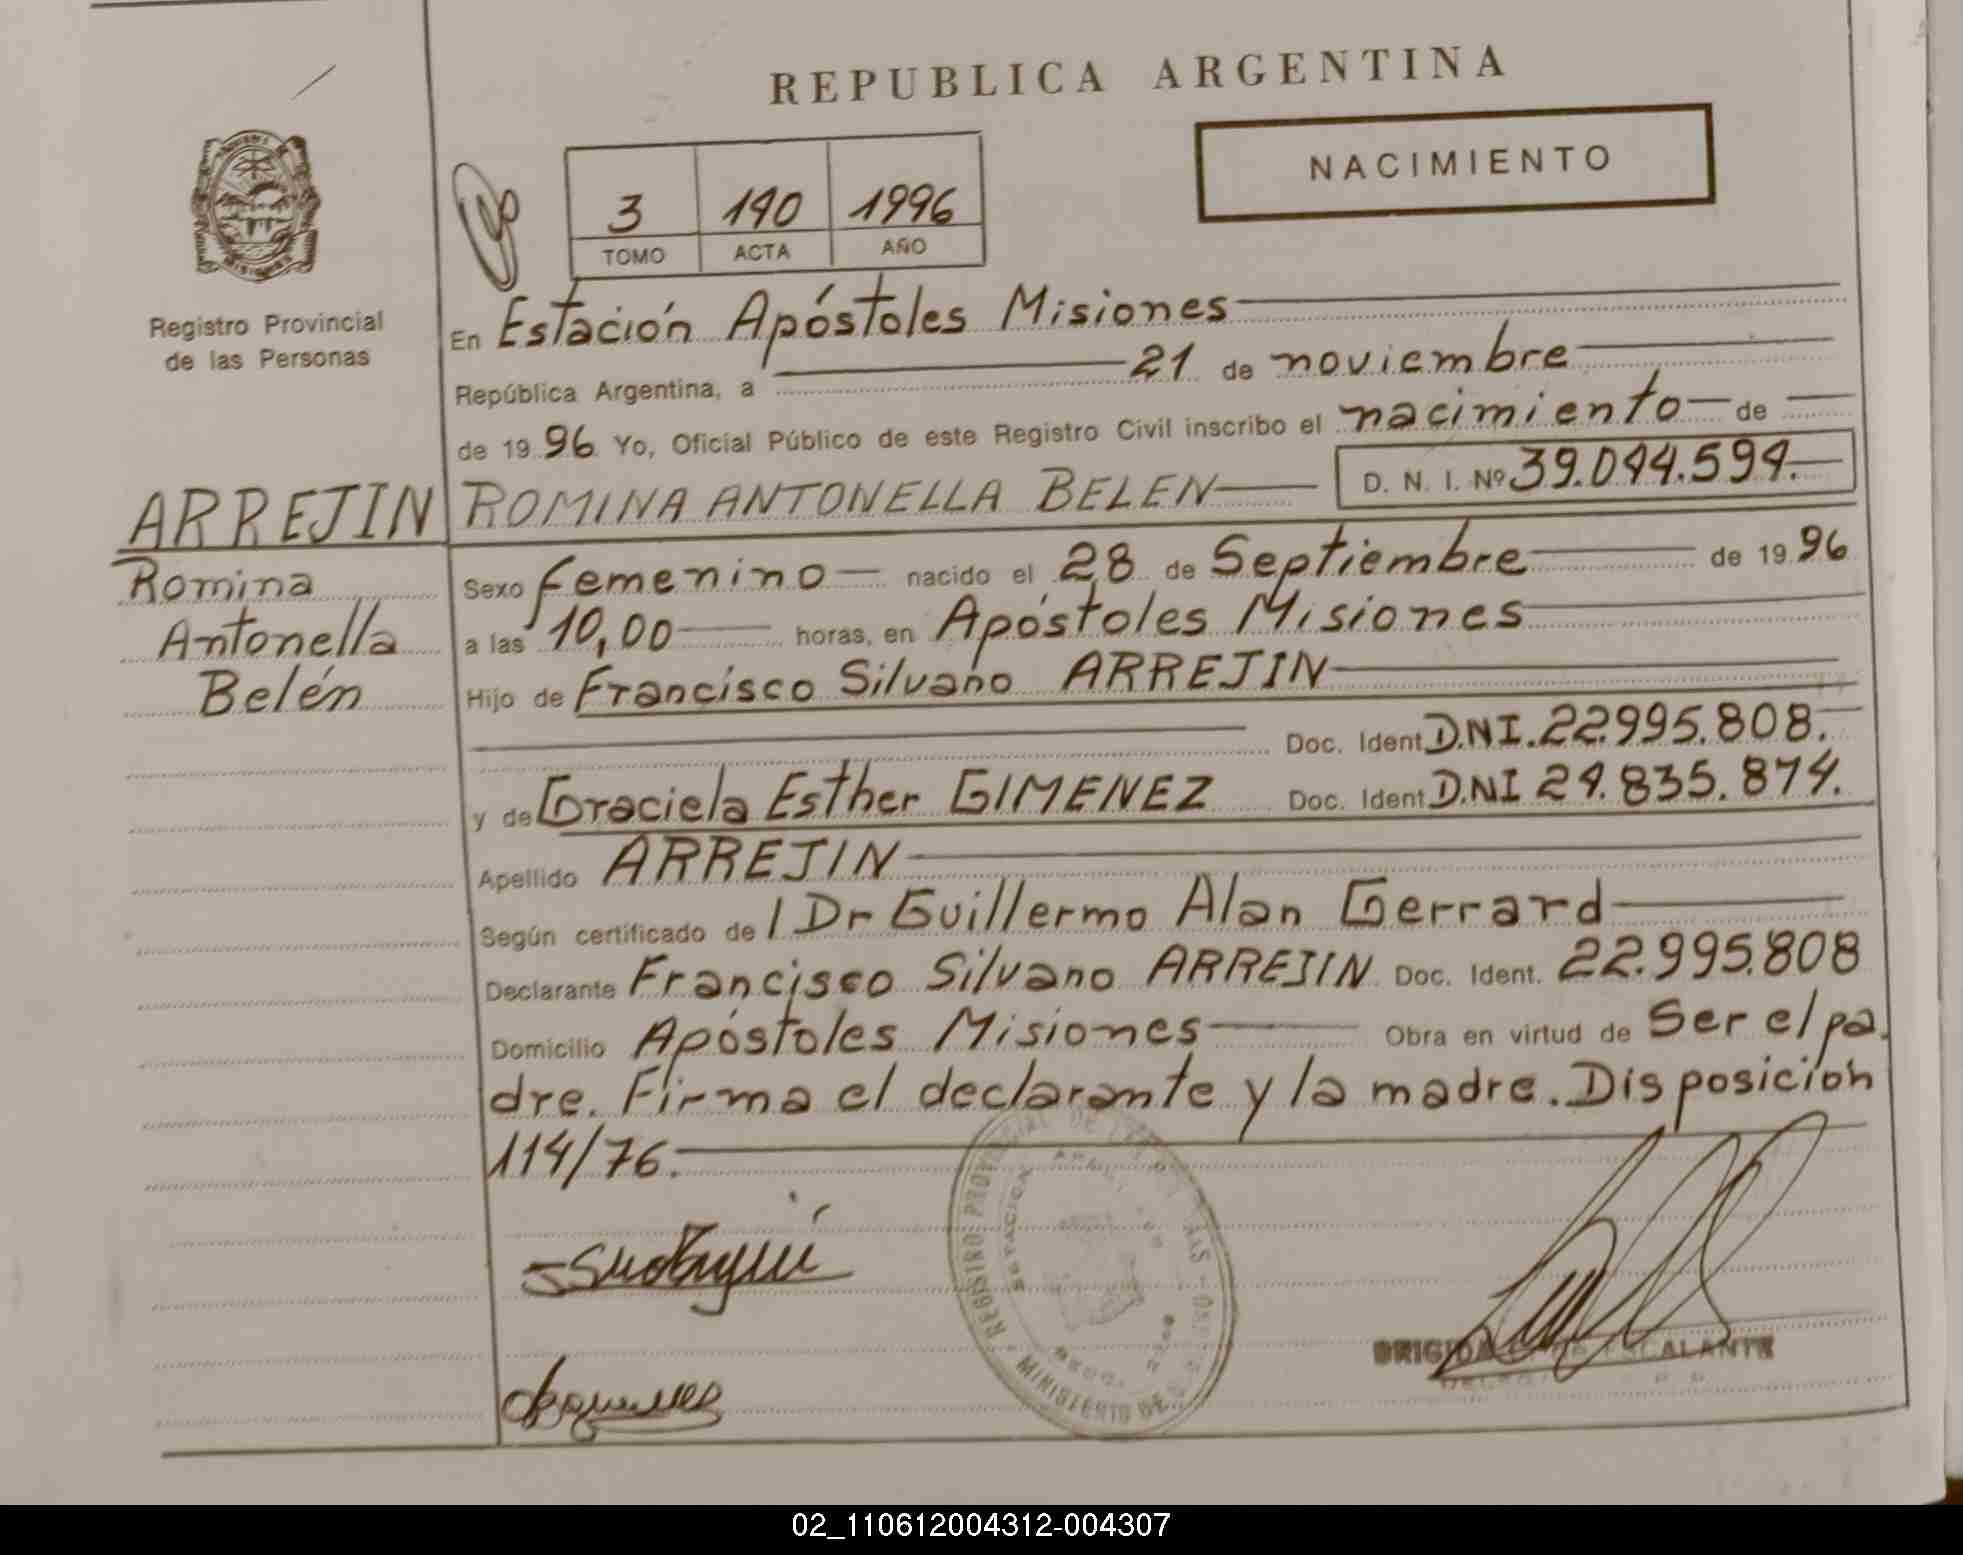 REPUBLICA ARGENTINA
NACIMIENTO
3 140 1996
TOMO ACTA AÑO
Registro Provincial
de las Personas
En Estación Apóstoles Misiones
República Argentina, a 21 de noviembre
de 1996 Yo, Oficial Público de este Registro Civil inscribo el nacimiento de
ARREJIN ROMINA ANTONELLA BELEN D. N. I. Nº 39.044.594.
Romina
Antonella
Belén
Sexo femenino nacido el 28 de Septiembre de 1996
a las 10,00 horas, en Apóstoles Misiones
Hijo de Francisco Silvano ARREJIN
Doc. Ident D.NI.22.995.808.
y de Graciela Esther GIMENEZ Doc. Ident D.NI 24.835.874.
Apellido ARREJIN
Según certificado de l Dr Guillermo Alan Gerrard
Declarante Francisco Silvano ARREJIN Doc. Ident. 22.995.808
Domicilio Apóstoles Misiones Obra en virtud de Ser el pa
dre. Firma el declarante y la madre. Disposición
114/76.
REGISTRO PROVINCIAL DE
MINISTERIO DE
02_110612004312-004307